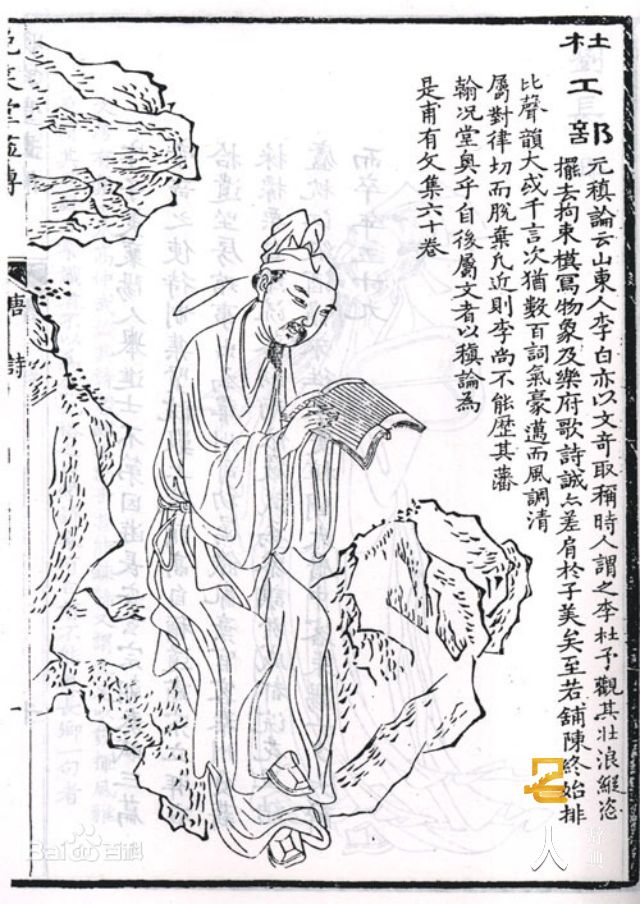 杜工部
元稹論云山東人李白亦以文奇取稱時人謂之李杜予觀其壯浪縱恣
擺去拘束模寫物象及樂府歌詩誠亦差肩於子美矣至若鋪陳終始排
比聲韻大或千言次猶數百詞氣豪邁而風調清
屬對律切而脫棄凡近則李尚不能歷其藩
翰况堂奧乎自後屬文者以稹論為
是甫有文集六十卷
唐詩
Bai百科
人